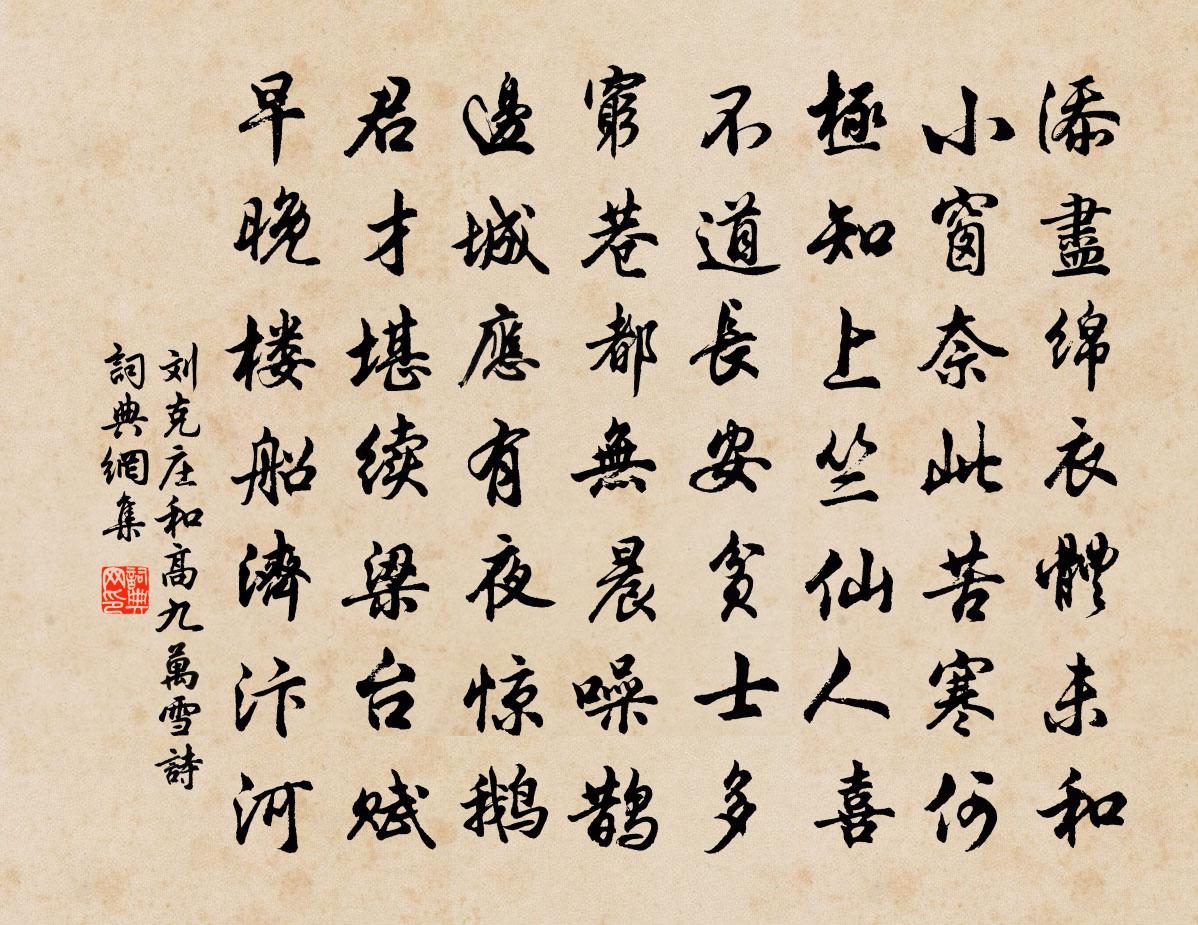 添盡绵衣體未和
小窗奈此苦寒何
極知上竺仙人喜
不道長安贫士多
窮巷都無晨噪鹊
邊城應有夜惊鹅
君才堪续梁台赋
早晚楼船濟汴河
刘克庄和高九萬雪詩
詞典網集
詞典网印